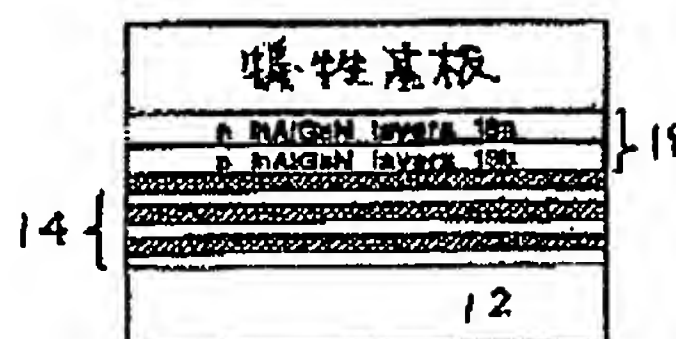 犠牲基板
n InAlGaN layers 18a
p InAlGaN layers 18b
18
14
12